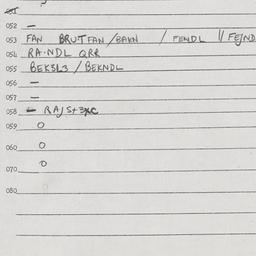 051
052 —
053 FAN BRUTFAN / BAKN / FENDL // FEJND
054 RA·NDL QRR
055 BEK3L3 / BEKNDL
056 —
057 —
058 — RAJS+3XC
059 O
060 O
070 O
080